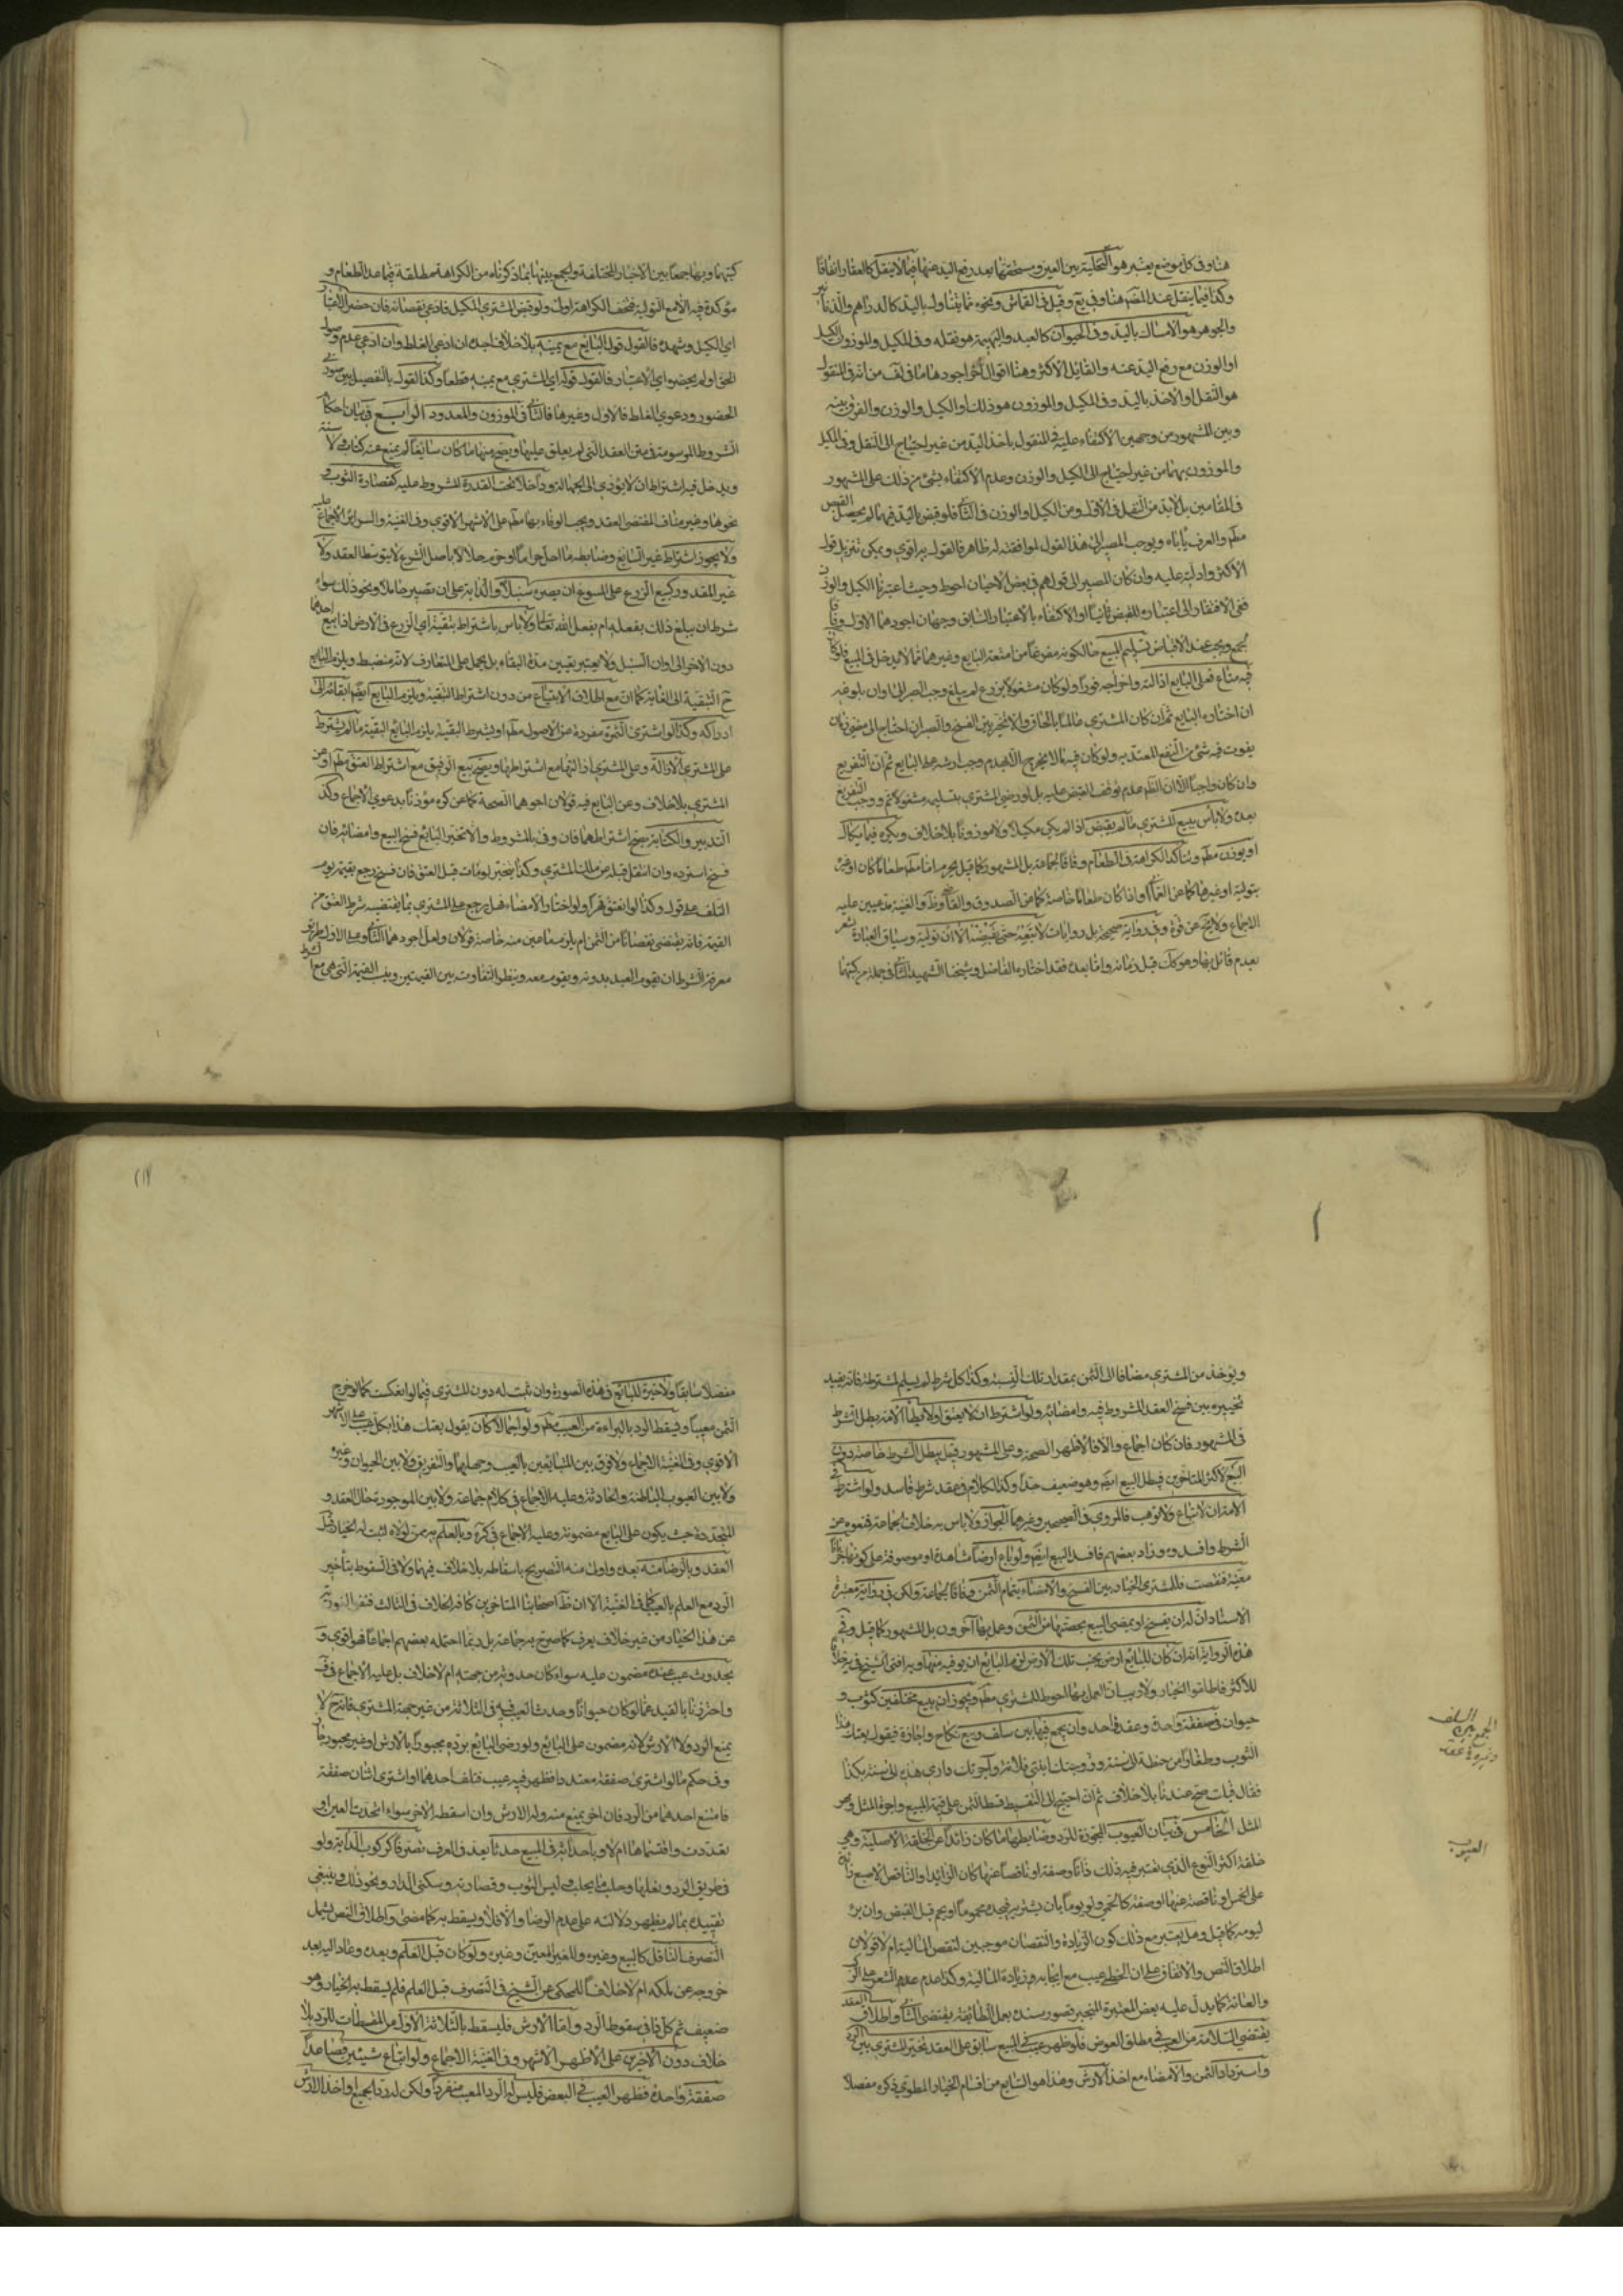 هنا وفي كل موضع يعتبر هو التخلية بين العين ومستحقها بعد رفع اليد عنها فيما لا ينقل كالعقار اتفاقا
وكذا فيما ينقل عند المصنف هنا وفي يع وقيل في القماش ونحوه مما يتناول باليد كالدراهم والدنانير
والجوهر هو الامساك باليد وفي الحيوان كالعبد والبهيمة هو نقله وفي المكيل والموزون الكيل
او الوزن مع رفع اليد عنه والقائل الاكثر وهنا اقوال اخر اجودها ما في لف من انه في المنقول
هو النقل او الاخذ باليد وفي المكيل والموزون هو ذلك او الكيل والوزن والفرق بينه
وبين المشهور من وجهين الاكتفاء عليه في المنقول باخذ اليد من غير احتياج الى النقل وفي المكيل
والموزون بهما من غير احتياج الى الكيل والوزن وعدم الاكتفاء بشئ من ذلك على المشهور
في المقامين بل لا بد من النقل في الاول ومن الكيل او الوزن في الثاني فلو قبض باليد فيهما لم يحصل القبض
مطم والعرف يأباه ويوجب المصير الى هذا القول لموافقته له ظاهر فالقول به اقوى ويمكن تنزيل قول
الاكثر وادلته عليه وان كان المصير الى قولهم في بعض الاحيان احوط وحيث اعتبرنا الكيل والوزن
ففي الافتقار الى اعتباره للقبض ثانيا او الاكتفاء بالاعتبار السابق وجهان اجودهما الاول وفاقا
لجمع ويجب عند الاقباض تسليم المبيع حالكونه مفرغا من امتعة البايع وغيرها مما لا يدخل في المبيع فلو كان
فيه متاع فعلى البايع ازالته واخراجه فورا ولو كان مشغولا بزرع لم يبلغ وجب الصبر الى اوان بلوغه
ان اختاره البايع ثم ان كان المشترى عالما بالحال والا تخير بين الفسخ والصبر ان احتاج الى مضي زمان
يفوت فيه شئ من النفع المعتد به ولو كان فيه ما لا يخرج الا بهدم وجب ارشه على البايع ثم ان التفريغ
وان كان واجبا الا ان الظم عدم توقف القبض عليه بل لو رضي المشتري بتسليمه مشغولا تم ووجب التفريغ
بعده ولا بأس ببيع المشتري ما لم يقبض اذا لم يكن مكيلا ولا موزونا بلا خلاف ويكره فيما يكال
او يوزن مطم وتتأكد الكراهة في الطعام وفاقا لجماعة بل المشهور كما قيل يحرم اما مطم طعاما كان او غيره
بتولية او غيرها كما عن العماني او اذا كان طعاما خاصة كما عن الصدوق والقاضي وظ والغنية مدعيين عليه
الاجماع ولا يخ عن قوة وفي رواية صحيحة بل روايات لا تبعه حتى تقبضه الا ان توليه وسياق العبارة يشعر
بعدم قائل بها وهو كك قبل زمانه واما بعده فقد اختاره الفاضل وشيخنا الشهيد الثاني في جملة من كتبها
كتبهما وبها جمعا بين الاخبار المختلفة والجمع بينها بما ذكرناه من الكراهة مطلقة فيما عدا الطعام و
مؤكدة فيه الا مع التولية فتخف الكراهة اولى ولو قبض المشترى المكيل فادعى نقصانه فان حضر الاعتبار
اي الكيل وشهده فالقول قول البايع مع يمينه بلا خلاف اجده ان ادعى الغلط وان ادعى عدم وصول
الحق او لم يحضره اي الاعتبار فالقول قوله اي المشترى مع يمينه قطعا وكذا القول بالتفصيل بين صورتي
الحضور ودعوى الغلط فالاول وغيرها فالثاني في الموزون والمعدود الرابع في بيان احكام
الشروط الموسومة في متن العقد التي لم يعلق عليها ويصح منها ما كان سايغا لم يمنع عنه كتاب ولا سنة
ويدخل فيه اشتراط ان لا يؤدي الى الجهالة وداخلا تحت القدرة للمشروط عليه كقصارة الثوب و
نحوها وغير مناف لمقتضى العقد ويجب الوفاء بها مطم على الاشهر الاقوى وفي الغنية والسرائر الاجماع عليه
ولا يجوز اشتراط غير السايغ وضابطه ما احل حراما او حرم حلالا باصل الشرع لا بتوسط العقد ولا
غير المقدور كبيع الزرع على المسوغ ان يصيره سنبلا والدابة على ان تصير حاملا ونحو ذلك سواء
شرط ان يبلغ ذلك بفعله ام بفعل الله تعالى ولا باس باشتراط تبقية اي الزرع في الارض اذا بيع احدهما
دون الاخر الى اوان السنبل ولا يعتبر تعيين مدة البقاء بل يحمل على المتعارف لانه منضبط ويلزم البايع
ح التبقية الى الغاية كما ان مع اطلاق الابتياع من دون اشتراط التبقية ويلزم البايع ايضا ابقائه الى
ادراكه وكذا لو اشترى الثمرة مفردة عن الاصول مطم او بشرط التبقية يلزم البايع التبقية ما لم يشترط
على المشترى الازالة وعلى المشترى ازالتها مع اشتراطها ويصح بيع الرقيق مع اشتراط العتق مطم او عن
المشتري بلا خلاف وعن البايع فيه قولان اجودهما الصحة كما عن كره مؤذنا بدعوى الاجماع وكذا
التدبير والكتابة يصح اشتراطهما فان وفى بالشروط والا تخير البايع فسخ البيع وامضائه فان
فسخ استرده وان انتقل قبله عن ملك المشتري وكذا يتخير لو مات قبل العتق فان فسخ رجع بقيمته يوم
التلف على قول وكذا لو انعتق قهرا ولو اختار الامضاء فهل يرجع على المشتري بما يقتضيه شرط العتق من
القيمة فانه يقتضي نقصانا من الثمن ام يلزم ما عين منه خاصة قولان ولعل اجودهما الثاني وعلى الاول طريق
معرفة الشرط ان يقوم العبد بدونه ويقوم معه وينظر التفاوت بين القيمتين وينسب القيمة التي هي مع الشرط
ويؤخذ من المشتري مضافا الى الثمن بمقدار تلك النسبة وكذا كل شرط لم يسلم لمشترطه فانه يفيد
تخييره بين فسخ العقد المشروط فيه وامضائه ولو اشترط ان لا يعتق او لا يطأ الامة بطل الشرط
في المشهور فان كان اجماع والا فالاظهر الصحة وعلى المشهور قيل يبطل الشرط خاصة دون
البيع لاكثر المتاخرين فيبطل البيع ايضم وهو ضعيف جدا وكذا الكلام في عقد شرط فاسد ولو اشترط في
الامة ان لا تباع ولا توهب فالمروي في الصحيحين وغيرهما الجواز ولا باس به خلافا لجماعة فمنعوه عن
الشرط وافسدوه وزاد بعضهم فافسد البيع ايضم ولو باع ارضا مشاهدة او موصوفة على كونها جربانا
معينة فنقصت فللمشتري الخيار بين الفسخ والامضاء بتمام الثمن وفاقا لجماعة ولكن في رواية معتبرة
الاسناد ان له ان يفسخ او يمضي البيع بحصتها من الثمن وعمل بها آخرون بل المشهور كما قيل وفي
هذه الرواية انه ان كان للبايع ارض بجنب تلك الارض لزم البايع ان يوفيه منها وبه افتى الشيخ في يه خلافا
للاكثر فاطلقوا الخيار ولا ريب ان العمل بها احوط للمشتري مطم ويجوز ان يبيع مختلفين كثوب و
حيوان في صفقة واحدة وعقد واحد وان يجمع فيها بين سلف وبيع نكاح واجازة فيقول بعتك هذا
الثوب وطغارا من حنطة الى سنة وزوجتك ابنتي فلانة وآجرتك داري هذه الى سنة بكذا
فقال قبلت صح عندنا بلا خلاف ثم ان احتيج الى التقسيط قسط الثمن على قيمة المبيع واجرة المثل ومهر
المثل الخامس في بيان العيوب المجوزة للرد وضابطها ما كان زائدا عن الخلقة الاصلية وهي
خلقة اكثر النوع الذي يعتبر فيه ذلك ذاتا وصفة او ناقصا عنها كان الزائد او الناقص الاصبع زائدة
على الخمس او ناقصة عنها او صفة كالحمى ولو يوما بان يشتريه فيجده محموما او يحم قبل القبض وان برء
ليومه كما قيل وهل يعتبر مع ذلك كون الزيادة والنقصان موجبين لنقص المالية ام لا قولان
اطلاق النص والاتفاق على ان الخصي عيب مع ايجابه في زيادة المالية وكذا عدم عدم الشعر على الركب
والعانة كما يدل عليه بعض المعتبرة المنجبر قصور سنده بعمل الطائفة يقتضي الثاني واطلاق العقد
يقتضي السلامة من العيب في مطلق العوض فلو ظهر عيب في المبيع سابق على العقد تخير المشتري بين الرد
واسترداد الثمن والامضاء مع اخذ الارش وهذا هو السابع من اقسام الخيار المطوي ذكره مفصلا
الجمع بين السلف
وغيره في عقد
العيوب
مفصلا سابقا ولا خيرة للبائع في هذه الصورة وان ثبت له دون المشتري فيما لو انعكست كما لو خرج
الثمن معيبا ويسقط الرد بالبراءة من العيب مطم ولو اجمالا كان يقول بعتك هذا بكل عيب على الاشهر
الاقوى وفي الغنية الاجماع ولا فرق بين المتبايعين بالعيب وجهلهما والتفريق ولا بين الحيوان وغيره
ولا بين العيوب الباطنة والحادثة وعليه الاجماع في كلام جماعة ولا بين الموجودة حال العقد و
المتجددة حيث يكون على البايع مضمونة وعليه الاجماع في كره وبالعلم به ممن لولاه لثبت له الخيار قبل
العقد وبالرضا منه بعده واولى منه التصريح باسقاطه بلا خلاف فيهما ولا في السقوط بتأخير
الرد مع العلم بالعيب كما في الغنية الا ان ظ اصحابنا المتاخرين كافة الخلاف في الثالث فنفوا فوريته
عن هذا الخيار من غير خلاف يعرف كما صرح به جماعة بل ربما احتمله بعضهم اجماعا فهو اقوى و
بحدوث عيب عنده مضمون عليه سواء كان حدوثه من جهته ام لا خلاف بل عليه الاجماع في ف
واحترزنا بالقيد عما لو كان حيوانا وحدث العيب فيه في الثلاثة من غير جهة المشتري فانه ح لا
يمنع الرد ولا الارش لانه مضمون على البائع ولو رضي البائع برده مجبورا بالارش او غير مجبور جاز
وفي حكم ما لو اشترى صفقة متعددا فظهر فيه عيب فتلف احدهما او اشترى اثنان صفقة
فامتنع احدهما من الرد فان اخر يمنع منه وله الارش وان اسقطه الاخر سواء اتحدت العين او
تعددت واقتسماها ام لا وباحداثه في المبيع حدثا يعد في العرف تصرفا كركوب الدابة ولو
في طريق الرد ونعلها وحلب ما يحلب ولبس الثوب وقصارته وسكنى الدار ونحو ذلك وينبغي
تقييده بما لم يظهر دلالته على عدم الرضا والا فلا ويسقط به كما مضى واطلاق النص يشمل
التصرف الناقل كالبيع وغيره والمغير للعين وغيره ولو كان قبل العلم وبعده وعاد اليه بعد
خروجه عن ملكه ام لا خلافا للمحكي عن الشيخ في التصرف قبل العلم فلم يسقط به الخيار وهو
ضعيف ثم كل ذا في سقوط الرد واما الارش فليسقط بالثلاثة الاول من المسقطات للرد بلا
خلاف دون الاخرين على الاظهر الاشهر وفي الغنية الاجماع ولو ابتاع شيئين فصاعدا
صفقة واحدة فظهر العيب في البعض فليس له الرد المعيب منفردا ولكن له رد الجميع او اخذ الارش